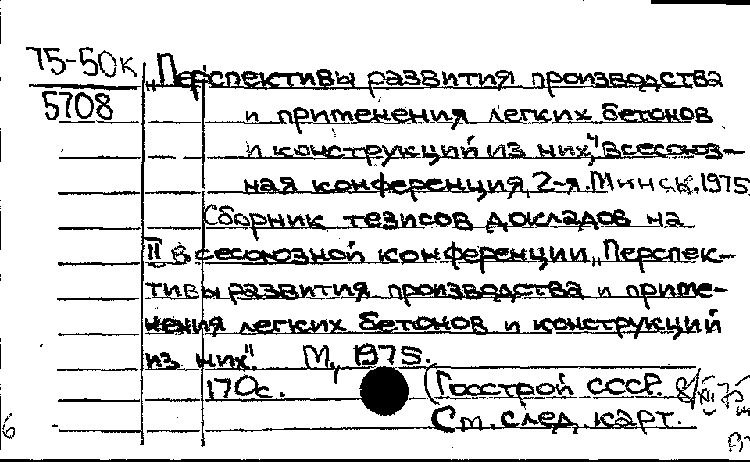 75-50к
5708
„Перспективы развития производства
и применения легких бетонов
и конструкций из них", всесоюз-
ная конференция, 2-я. Минск, 1975
Сборник тезисов докладов на
II всесоюзной конференции „Перспек-
тивы развития производства и приме-
нения легких бетонов и конструкций
из них". М., 1975.
170с. (Госстрой СССР.
См. след. карт.
6